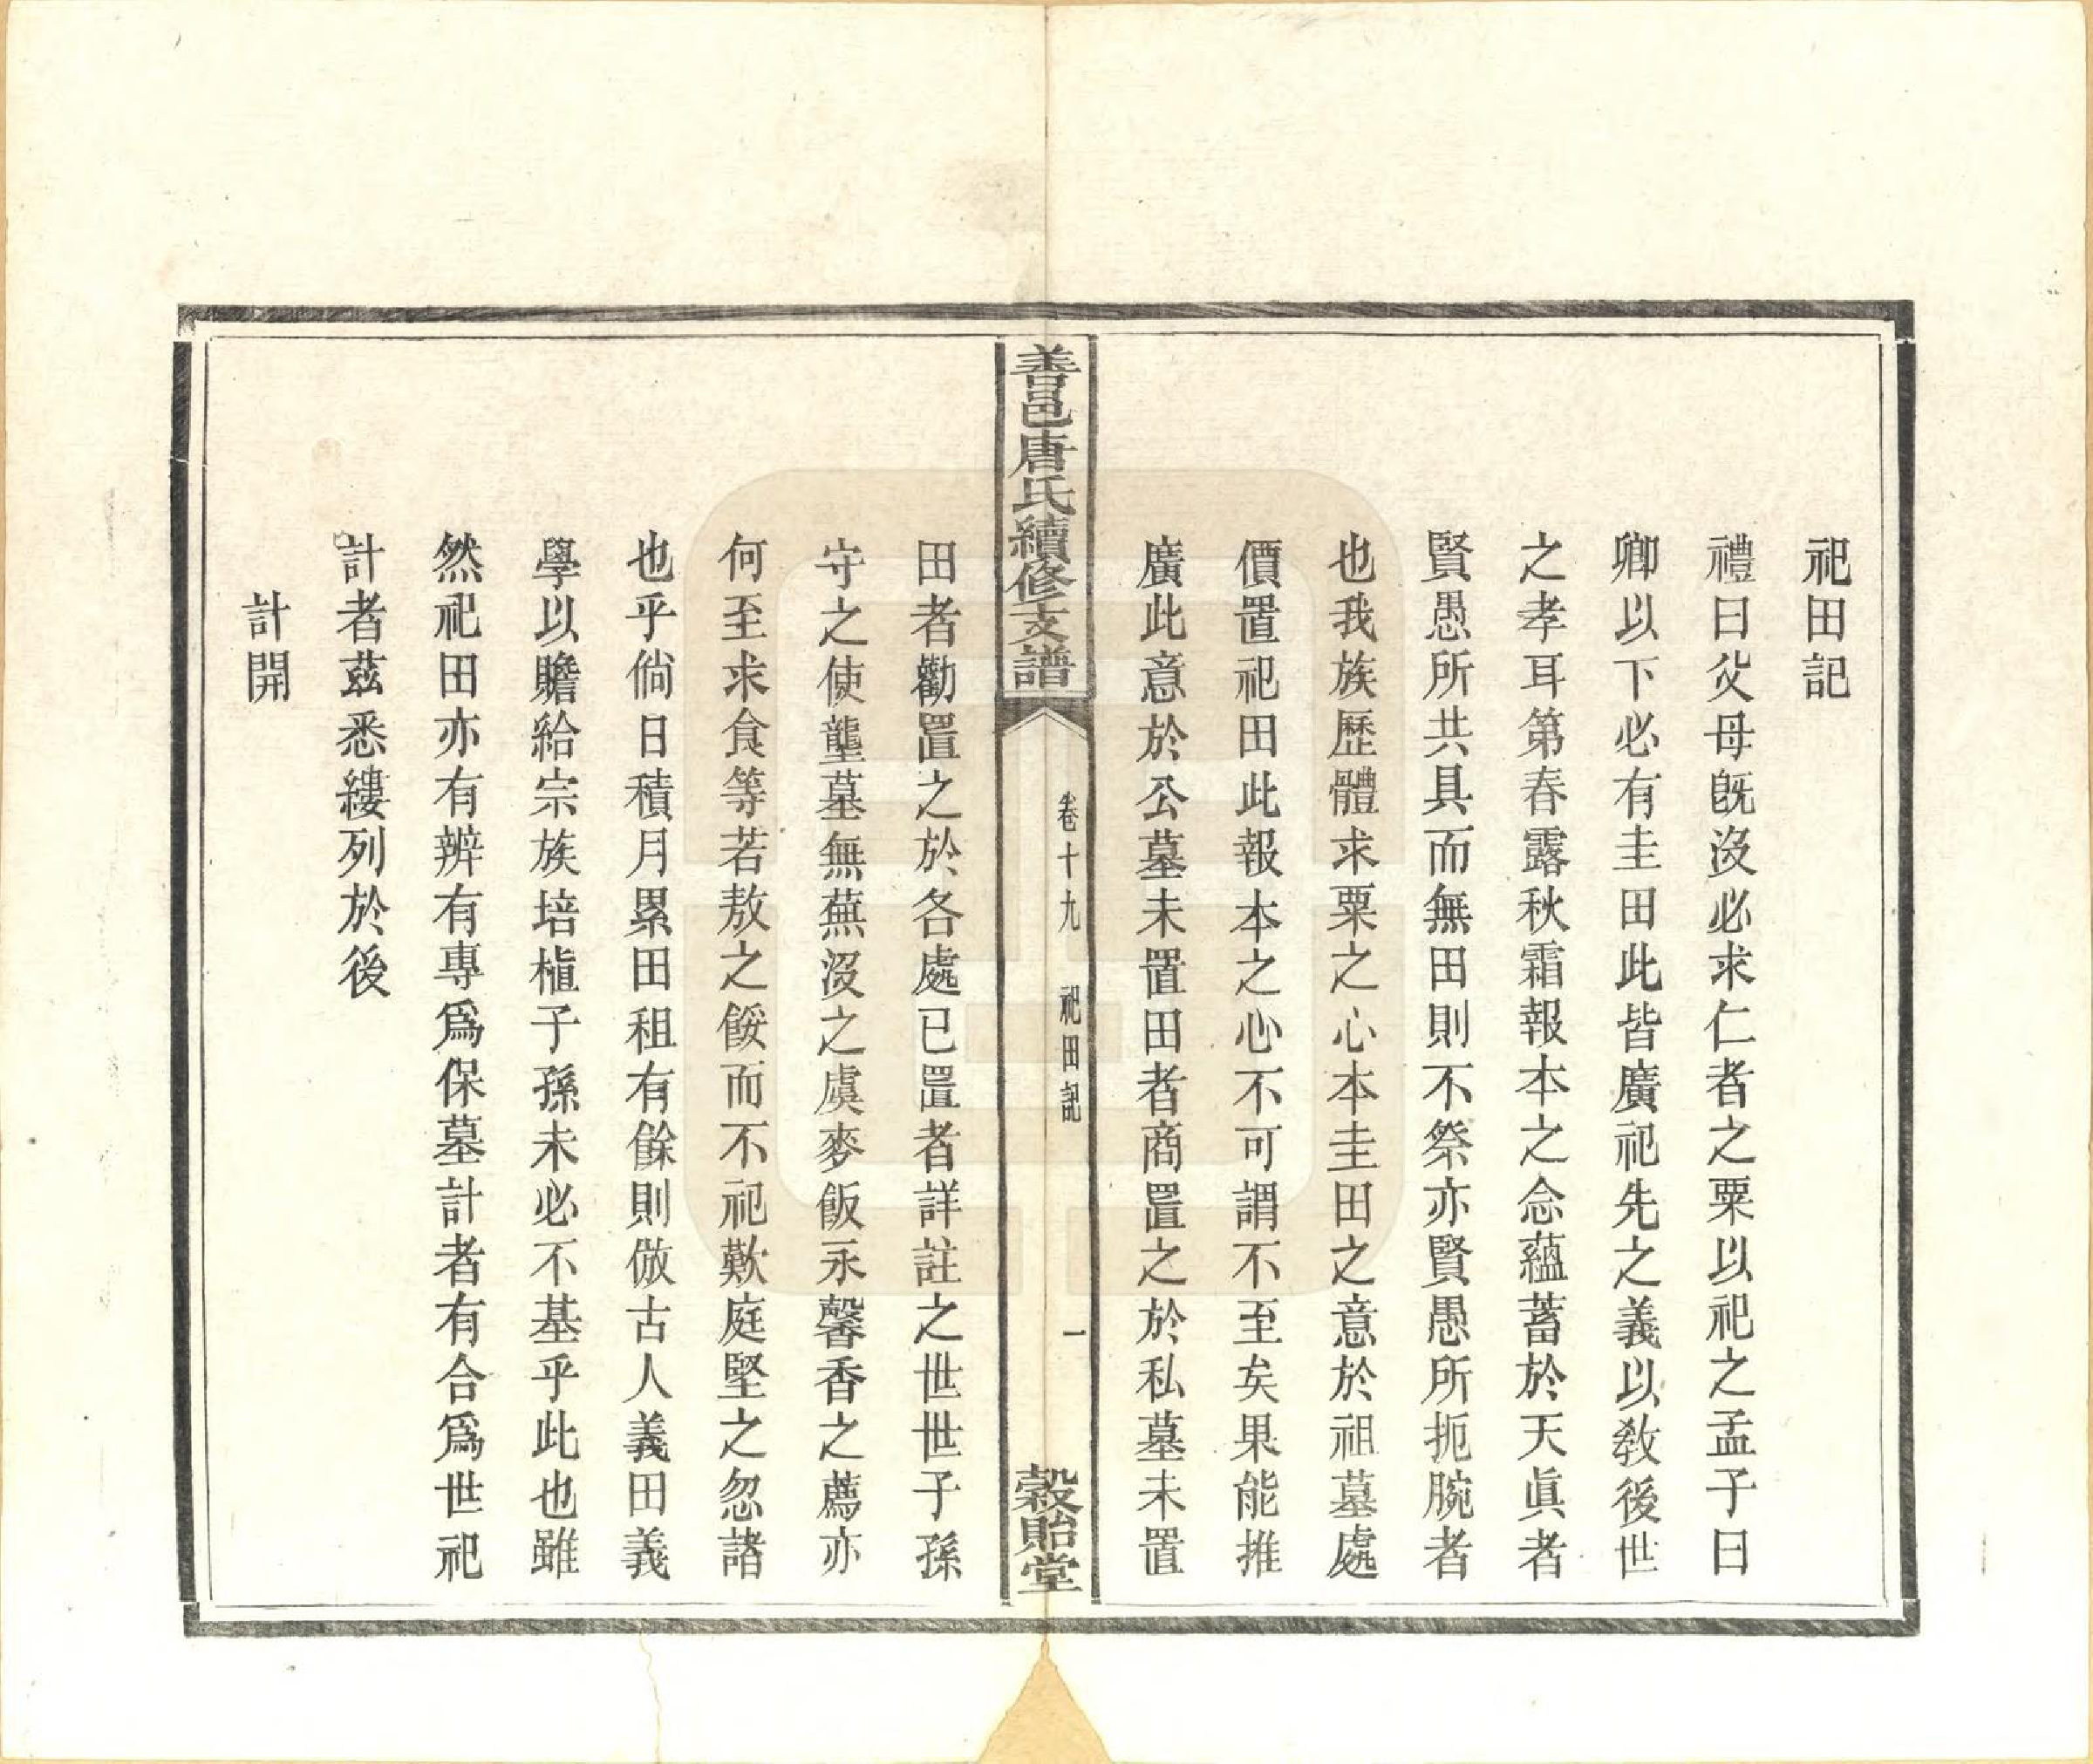 祀田記
禮曰父母旣沒必求仁者之粟以祀之孟子曰
卿以下必有圭田此皆廣祀先之義以敎後世
之孝耳第春露秋霜報本之念蘊蓄於天眞者
賢愚所共具而無田則不祭亦賢愚所扼腕者
也我族歷體求粟之心本圭田之意於祖墓處
價置祀田此報本之心不可謂不至矣果能推
廣此意於公墓未置田者商置之於私墓未置
善邑唐氏續修支譜
卷十九
祀田記
一
穀貽堂
田者勸置之於各處已置者詳註之世世子孫
守之使壟墓無蕪沒之虞麥飯永馨香之薦亦
何至求食等若敖之餒而不祀歎庭堅之忽諸
也乎倘日積月累田租有餘則倣古人義田義
學以贍給宗族培植子孫未必不基乎此也雖
然祀田亦有辨有專爲保墓計者有合爲世祀
計者茲悉縷列於後
計開